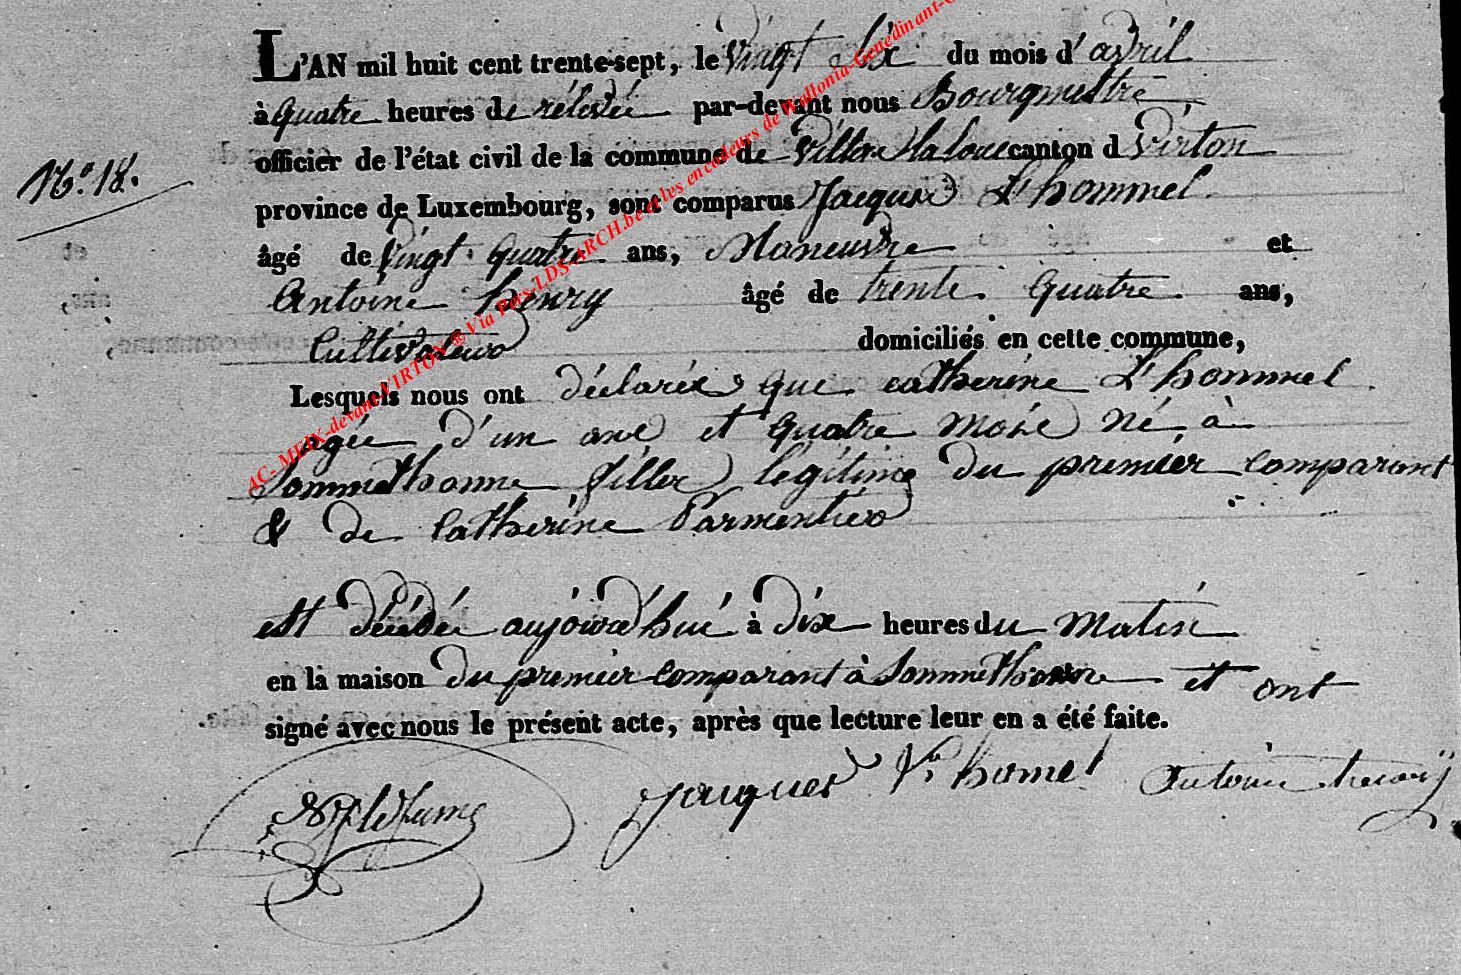 L'AN mil huit cent trente-sept, le Vingt Six du mois d'avril
à quatre heures de rélevée par-devant nous Bourgmestre
officier de l'état civil de la commune de Villers la loue canton d Virton
N.° 18.
province de Luxembourg, sont comparus Jacques L'hommel
âgé de Vingt quatre ans, Maneuvre et
Antoine henry âgé de trente quatre ans,
Cultivateur domiciliés en cette commune,
Lesquels nous ont déclarés que catherine L'hommel
agée d'un ans et quatre mois né à
Sommethonne filles légitime du premier comparant
& de Catherine Parmentier
est décédée aujourd'hui à dix heures du matin
en la maison du premier comparant à Sommethonne et ont
signé avec nous le présent acte, après que lecture leur en a été faite.
Jacques L'homel Antoine henry
AC- MEIX-devant-VIRTON ® Via Pers-LDS-ARCH.be et les encodeurs de Wallonia-Genedinant-